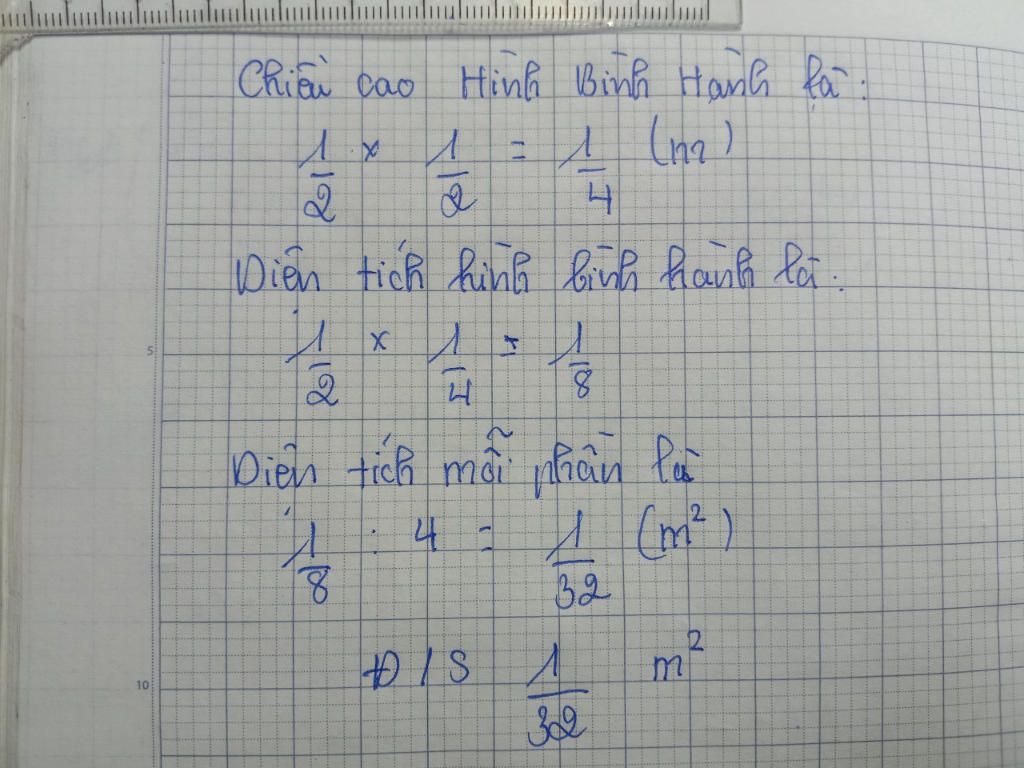 Chiều cao Hình Bình Hành là:
1/2 × 1/2 = 1/4 (m)
Diện tích hình bình hành là:
1/2 × 1/4 = 1/8
5
Diện tích mỗi phần là
1/8 : 4 = 1/32 (m²)
Đ/S 1/32 m²
10